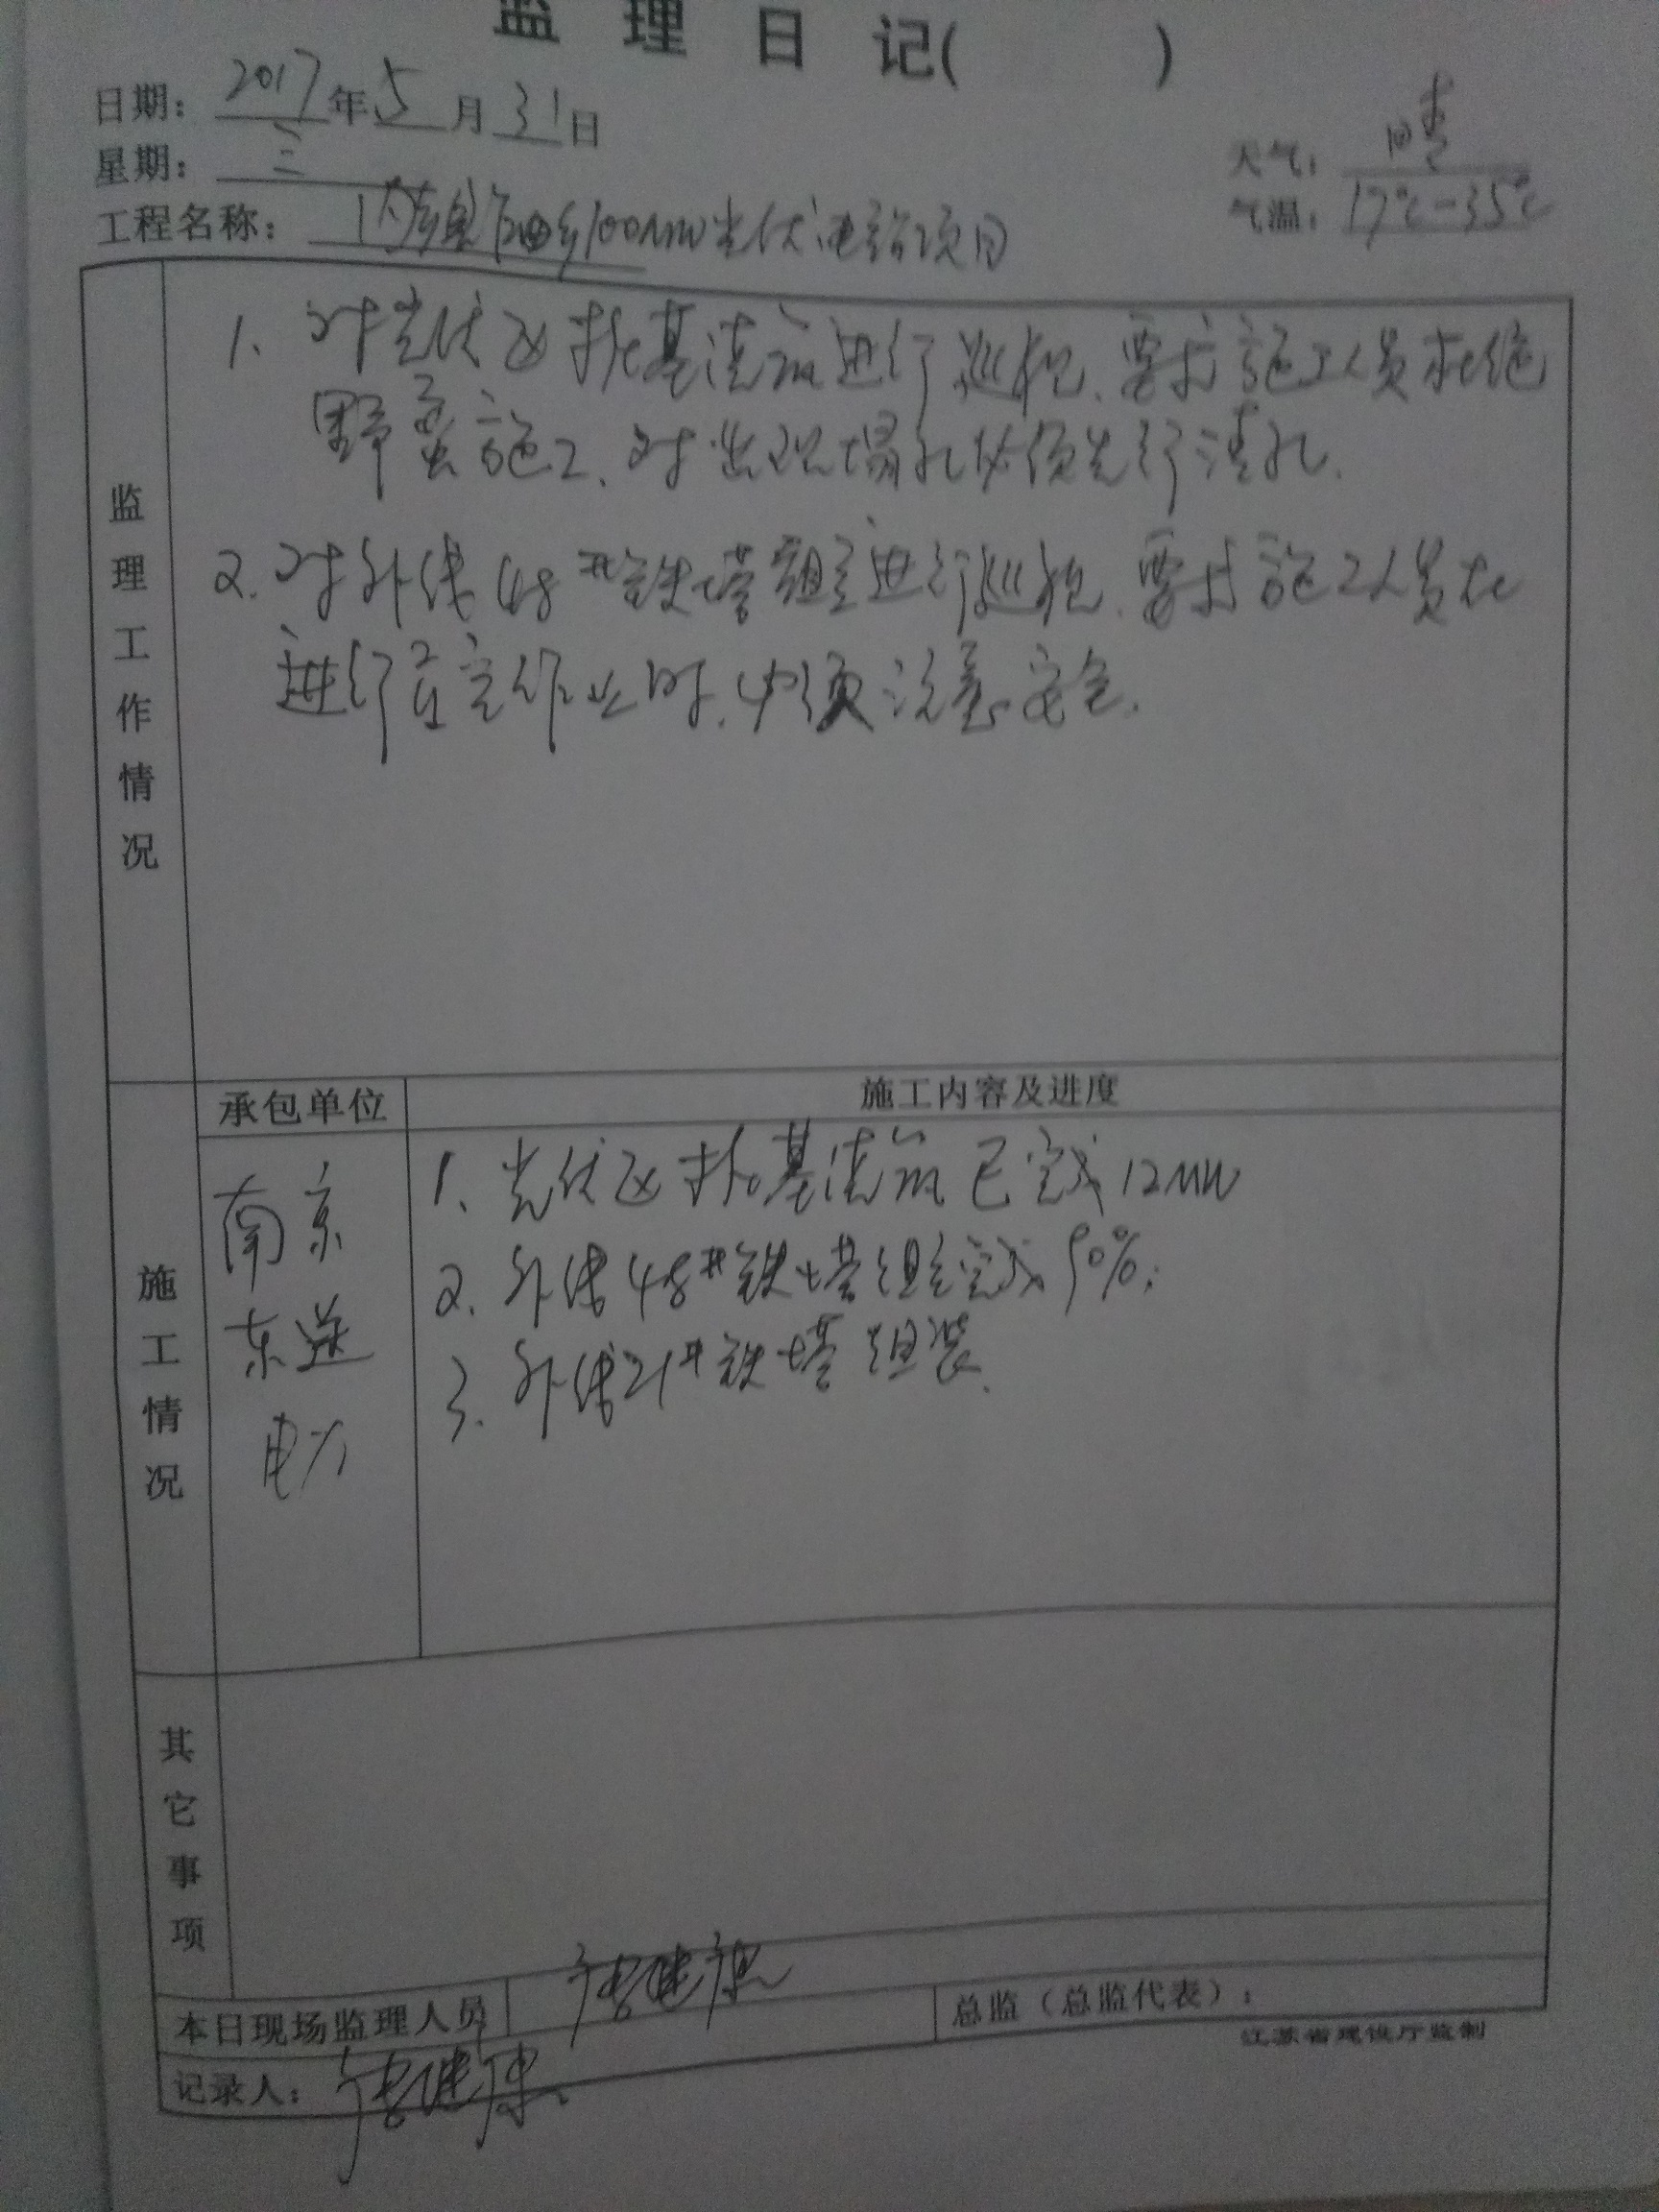 监理日记( )
日期: 2017年5月31日
星期: 三
天气: 晴
气温: 17℃-35℃
工程名称: 100MW光伏电站项目
监理工作情况
1. 对光伏区桩基浇筑进行巡视、要求施工人员杜绝
野蛮施工、对出现塌孔必须先行清孔.
2. 对外线48#铁塔组立进行巡视、要求施工人员在
进行高空作业时、必须注意安全.
施工情况
承包单位
施工内容及进度
南京
东送
电力
1、光伏区桩基浇筑已完成12MW
2、外线48#铁塔组立完成90%;
3、外线21#铁塔组装.
其它事项
本日现场监理人员
总监（总监代表）:
记录人:
江苏省建设厅监制